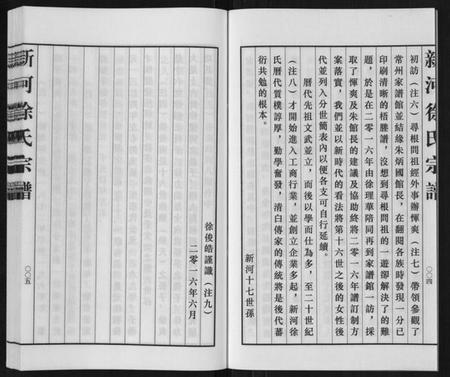 新河徐氏宗譜
〇〇四
初訪（注六）尋根問祖經外事辦惲奭（注七）帶領參觀了
常州家譜館並結緣朱炳國館長，在翻閱各族時發現一分已
印刷清晰的梧塍譜，沒想到尋根問祖的一遊卻解決了的難
題，於是在二零一六年由徐理華陪同再到家譜館一訪，採
取了惲奭及朱館長的建議及協助終將二零一六年譜訂制方
案落實，我們並以新時代的看法將第十六世之後的女性後
代並列入分世簡表內以便各支可自行延續。
歷代先祖文武並立，而後以學而仕為多，至二十世紀
（注八）才開始進入工商行業，並創立企業多起，新河徐
氏歷代質樸諄厚，勤學奮發，清白傳家的傳統將是後代蕃
衍共勉的根本。
新河十七世孫
徐俊皓謹識（注九）
二零一六年六月
新河徐氏宗譜
〇〇五